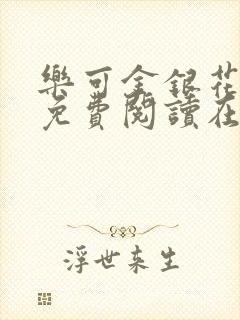 樂可金銀花
免費閱讀在
浮世來生